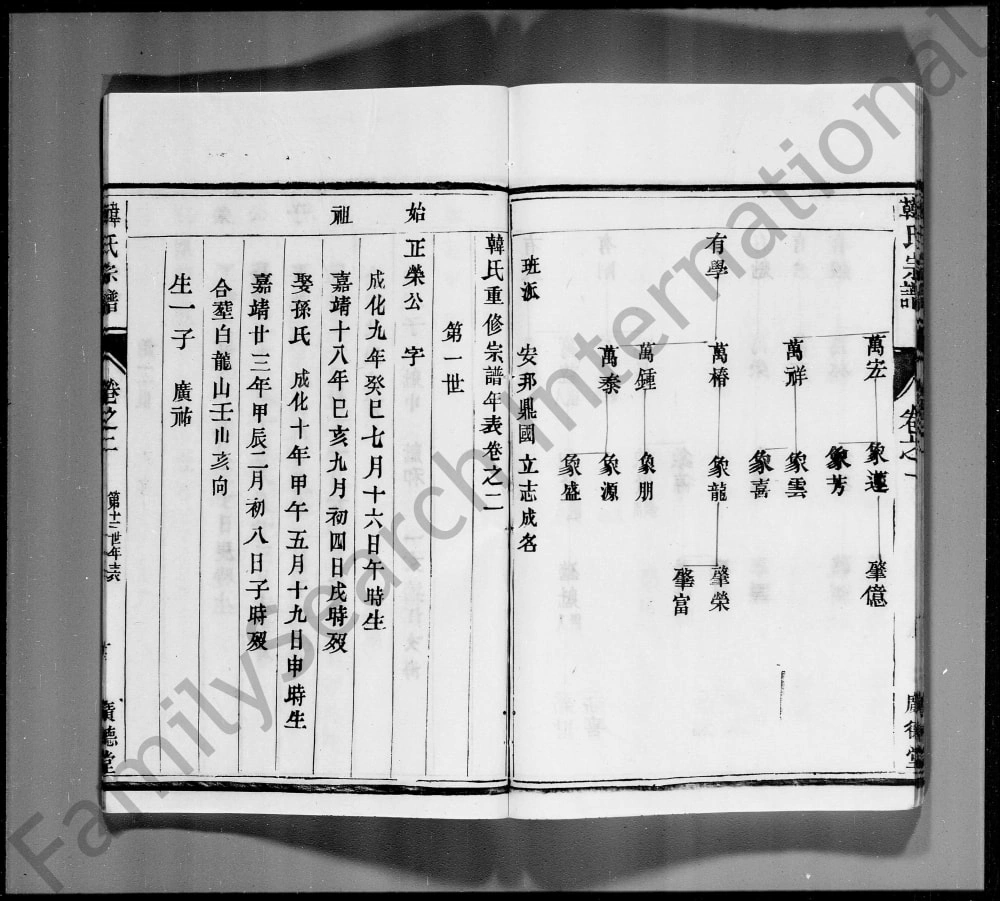 韓氏宗譜
卷之一
廣德堂
萬宏
象運
肇億
象芳
萬祥
象雲
象喜
有學
萬椿
象龍
肇榮
肇富
萬鍾
象朋
萬泰
象源
象盛
班派 安邦鼎國 立志成名
韓氏重修宗譜年表卷之二
第一世
始祖
正榮公 字
成化九年癸巳七月十六日午時生
嘉靖十八年巳亥九月初四日戌時歿
娶孫氏 成化十年甲午五月十九日申時生
嘉靖廿三年甲辰二月初八日子時歿
合塟白龍山壬山亥向
生一子 廣祐
韓氏宗譜
卷之二
第十二世年表
廣德堂
FamilySearch International